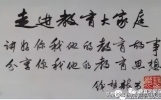 走进教育大家庭
讲好你我他的教育的事
分享你我他的教育思想